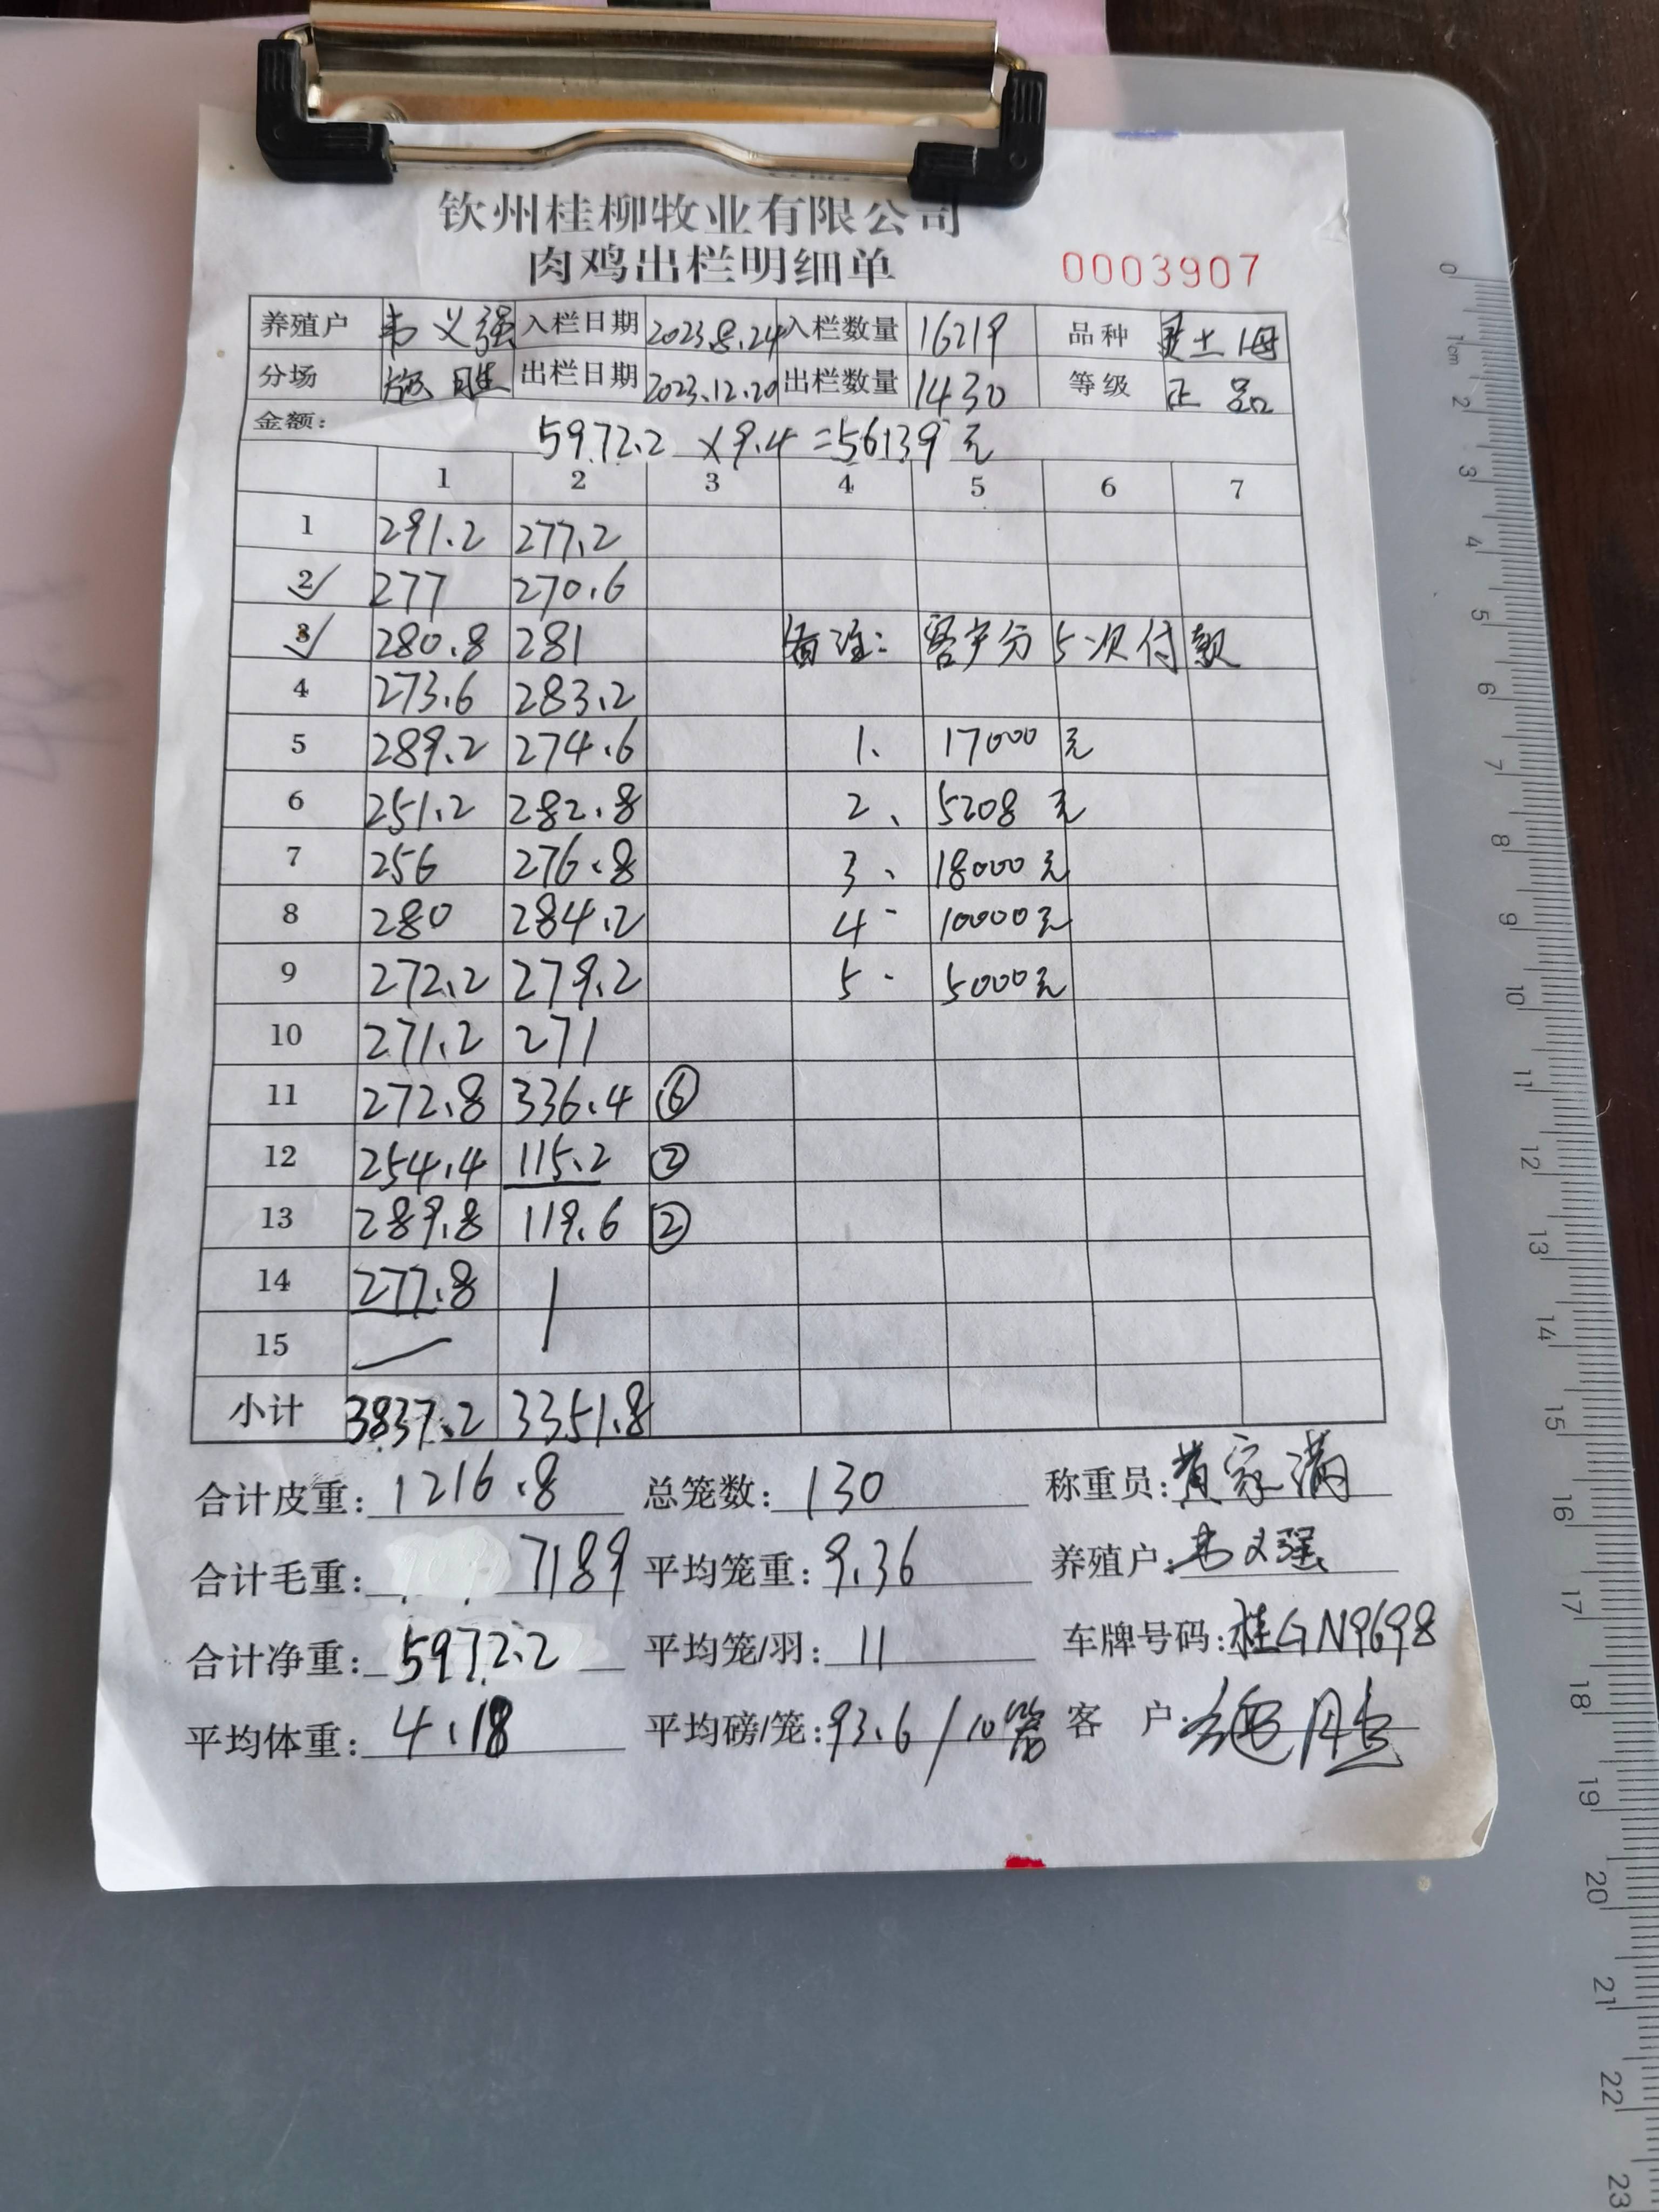 钦州桂柳牧业有限公司
肉鸡出栏明细单 0003907
养殖户 韦义强 入栏日期 2023.8.24 入栏数量 16219 品种 土母
分场 胜 出栏日期 2023.12.20 出栏数量 1430 等级 正品
金额: 5972.2 ×9.4=56139元
1 2 3 4 5 6 7
1 291.2 277.2
2 277 270.6
3 280.8 281 备注: 客户分5次付款
4 273.6 283.2
5 289.2 274.6 1、 17000元
6 251.2 282.8 2、 5208元
7 256 276.8 3、 18000元
8 280 284.2 4- 10000元
9 272.2 279.2 5- 5000元
10 271.2 271
11 272.8 336.4 ⑥
12 254.4 115.2 ②
13 289.8 119.6 ②
14 277.8
15
小计 3837.2 3351.8
合计皮重: 1216.8 总笼数: 130 称重员: 黄家满
合计毛重: 7189 平均笼重: 9.36 养殖户: 韦义强
合计净重: 5972.2 平均笼/羽: 11 车牌号码: 桂GN9698
平均体重: 4.18 平均磅/笼: 93.6/10笼 客 户:
0
1cm
2
3
4
5
6
7
8
9
10
11
12
13
14
15
16
17
18
19
20
21
22
23